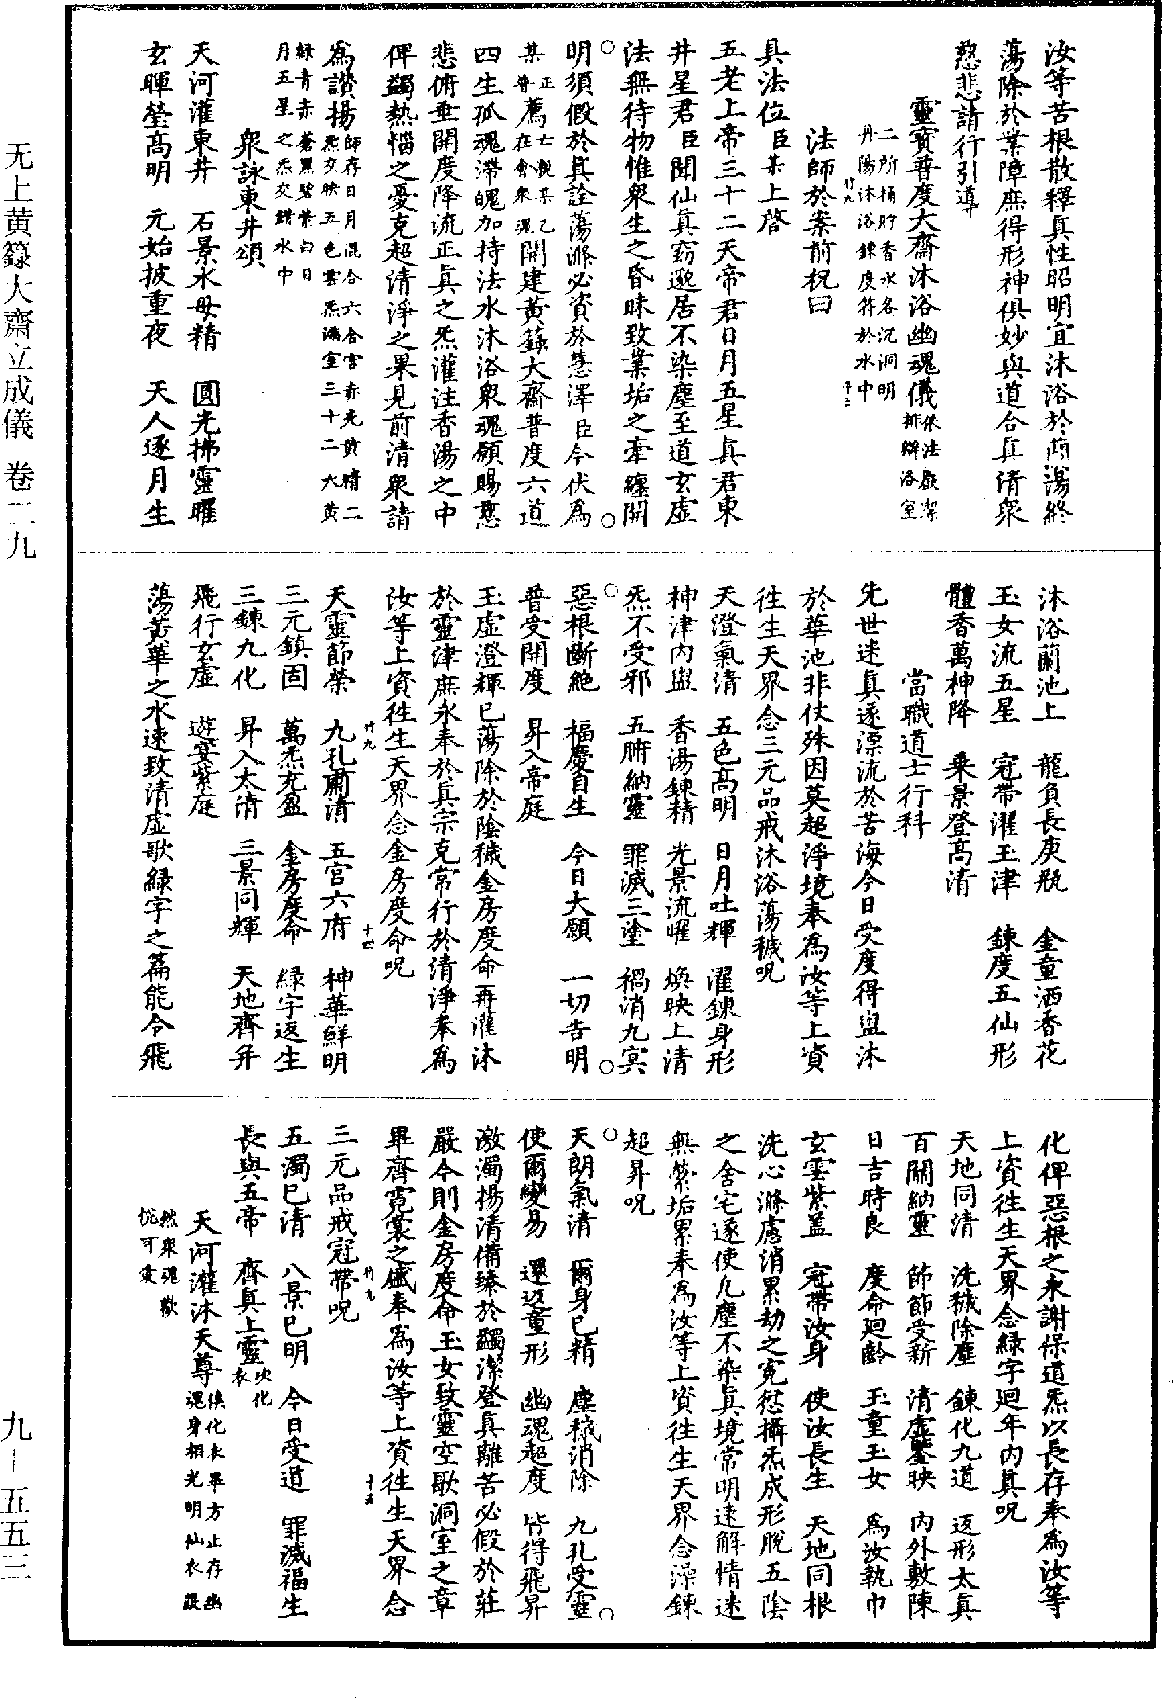 汝等苦根散釋真性昭明宜沐浴於蘭湯終
蕩除於業障庶得形神俱妙與道合真清衆
慈悲請行引導
靈寶普度大齋沐浴幽魂儀依法嚴潔排辦浴室
二所桶貯香水各沉洞明
丹陽沐浴鍊度符於水中
法師於案前祝曰
具法位臣某上啓
五老上帝三十二天帝君日月五星真君東
井星君臣聞仙真窈邈居不染塵至道玄虛
法無待物惟衆生之昏昧致業垢之牽纏開
明須假於真詮蕩滌必資於慧澤臣今伏爲
某齋正薦亡親某乙在會衆魂開建黃籙大齋普度六道
四生孤魂滯魄加持法水沐浴衆魂願賜慈
悲俯垂開度降流正真之炁灌注香湯之中
俾蠲熱惱之憂克超清淨之果見前清衆請
爲讚揚師存日月混合六合宮赤光黃精二炁交映五色雲炁滿室三十二天黃
綠青赤蒼黑碧紫白日
月五星之炁交錯水中
衆詠東井頌
天河灌東井　石景水母精　圓光拂靈曜
玄暉瑩高明　元始披重夜　天人逐月生
沐浴蘭池上　龍負長庚瓶　金童洒香花
玉女流五星　冠帶濯玉津　鍊度五仙形
體香萬神降　乘景登高清
當職道士行科
先世迷真逐漂流於苦海今日受度得盥沐
於華池非仗殊因莫超淨境奉爲汝等上資
往生天界念三元品戒沐浴蕩穢呪
天澄氣清　五色高明　日月吐輝　濯鍊身形
神津內盥　香湯鍊精　光景流曜　煥映上清
炁不受邪　五腑納靈　罪滅三塗　禍消九冥
惡根斷絶　福慶自生　今日大願　一切告明
普受開度　昇入帝庭
玉虛澄輝已蕩除於陰穢金房度命再灌沐
於靈津庶永奉於真宗克常行於清淨奉爲
汝等上資往生天界念金房度命呪
天靈節榮　九孔肅清　五宮六府　神華鮮明
三元鎮固　萬炁充盈　金房度命　綠字返生
三鍊九化　昇入太清　三景同輝　天地齊并
飛行玄虛　遊宴紫庭
蕩黃華之水速致清虛歌綠字之篇能令飛
化俾惡根之永謝保道炁以長存奉爲汝等
上資往生天界念綠字廻年內真呪
天地同清　洗穢除塵　鍊化九道　返形太真
百關納靈　節節受新　清虛鑒映　內外敷陳
日吉時良　度命廻齡　玉童玉女　爲汝執巾
玄雲紫蓋　冠帶汝身　使汝長生　天地同根
洗心滌慮消累劫之冤愆攝炁成形脫五陰
之舍宅遂使凡塵不染真境常明速解情迷
無縈垢累奉爲汝等上資往生天界念澡鍊
超昇呪
天朗氣清　爾身已精　塵穢消除　九孔受靈
使爾變易　還返童形　幽魂超度　皆得飛昇
激濁揚清備臻於蠲潔登真離苦必假於莊
嚴今則金房度命玉女致靈空歌洞室之章
畢齊霓裳之儀奉爲汝等上資往生天界念
三元品戒冠帶呪
五濁已清　八景已明　今日受道　罪滅福生
長與五帝　齊真上靈次化衣
天河灌沐天尊俟化衣畢方止存幽魂身相光明仙衣儼
然衆魂歡
悅可束
无上黄籙大齋立成儀　卷二九
九－五五三